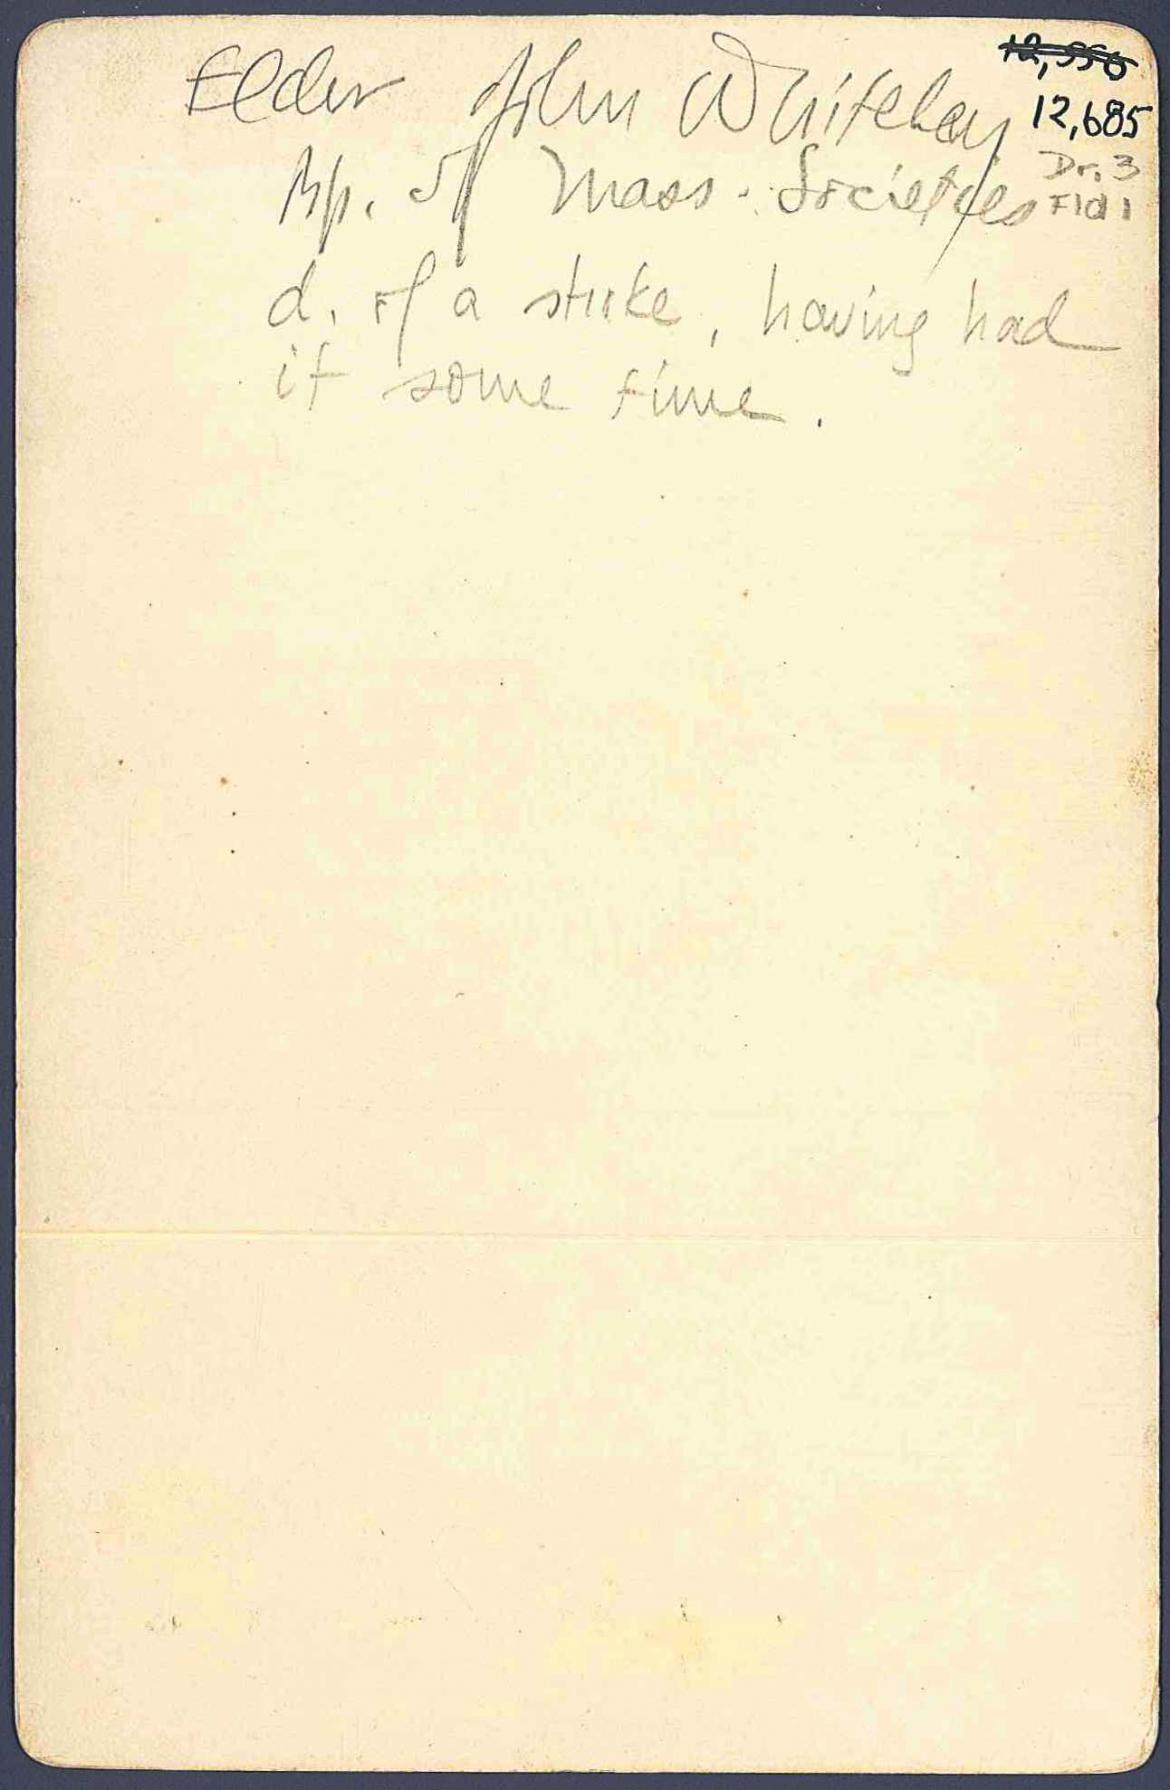 Elder John Whiteley
Bp. of Mass. Societies
d. of a stroke, having had
it some time.
12,685
Dr. 3
Fld 1